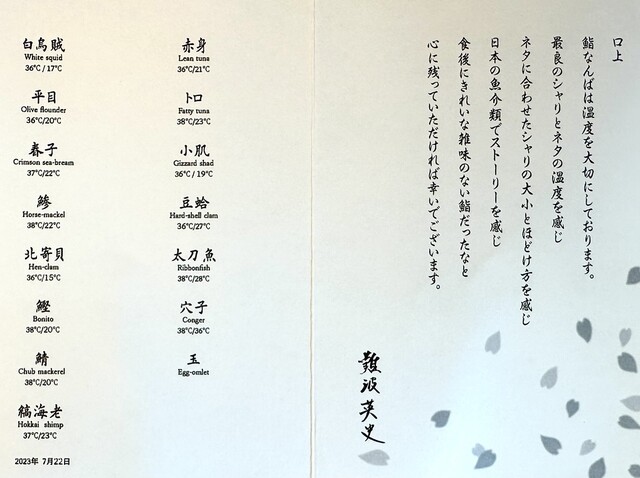 口上
鮨なんばは温度を大切にしております。
最良のシャリとネタの温度を感じ
ネタに合わせたシャリの大小とほどけ方を感じ
日本の魚介類でストーリーを感じ
食後にきれいな雑味のない鮨だったなと
心に残っていただければ幸いでございます。
難波英史
赤身
Lean tuna
36℃/21℃
トロ
Fatty tuna
38℃/23℃
小肌
Gizzard shad
36℃ / 19℃
豆蛤
Hard-shell clam
36℃/27℃
太刀魚
Ribbonfish
38℃/28℃
穴子
Conger
38℃/36℃
玉
Egg-omlet
白烏賊
White squid
36℃ / 17℃
平目
Olive flounder
36℃/20℃
春子
Crimson sea-bream
37℃/22℃
鯵
Horse-mackel
38℃/22℃
北寄貝
Hen-clam
36℃/15℃
鰹
Bonito
38℃/20℃
鯖
Chub mackerel
38℃/20℃
縞海老
Hokkai shimp
37℃/23℃
2023年 7月22日